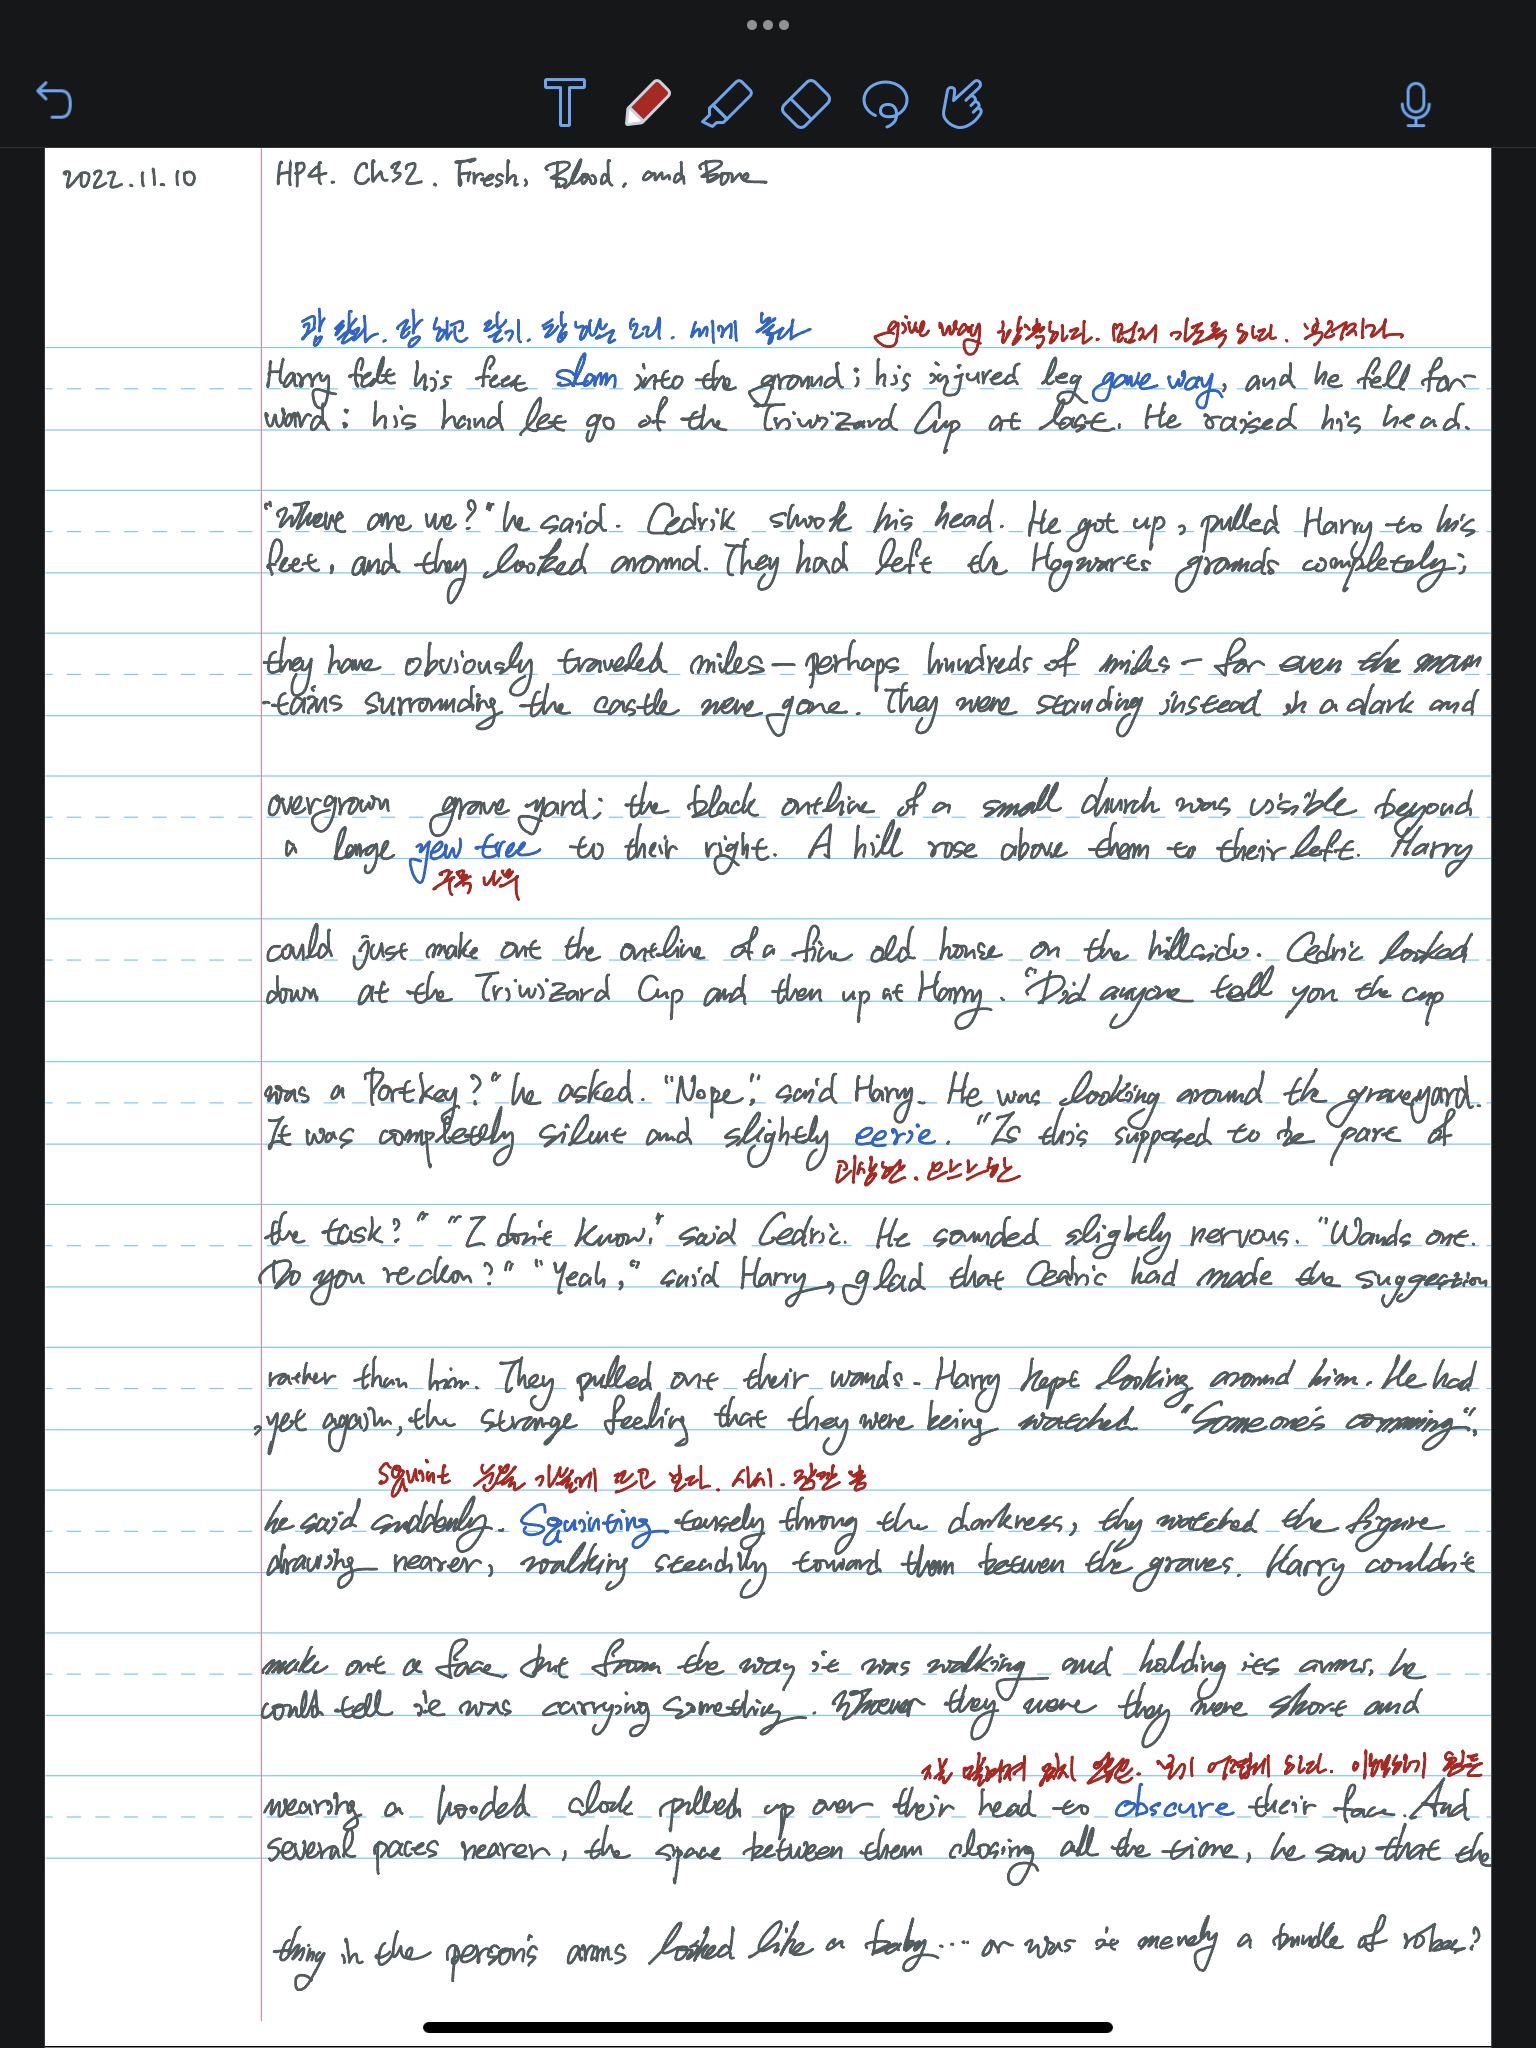 2022.11.10 HP4. Ch32. Fresh, Blood, and Bone
쾅 닫다. 쾅 하고 닫기. 탕 하는 소리. 세게 놓다 give way 항복하다. 먼저 가도록 하다. 부러지다
Harry felt his feet slam into the ground; his injured leg gave way, and he fell for-
ward; his hand let go of the Triwizard Cup at last. He raised his head.
"Where are we?" he said. Cedrik shook his head. He got up, pulled Harry to his
feet, and they looked around. They had left the Hogwarts grounds completely;
they have obviously traveled miles - perhaps hundreds of miles - for even the moun
-tains surrounding the castle were gone. They were standing instead in a dark and
overgrown grave yard; the black outline of a small church was visible beyond
a large yew tree to their right. A hill rose above them to their left. Harry
주목 나무
could just make out the outline of a fine old house on the hillside. Cedric looked
down at the Triwizard Cup and then up at Harry. "Did anyone tell you the cup
was a Portkey?" he asked. "Nope," said Harry. He was looking around the graveyard.
It was completely silent and slightly eerie. "Is this supposed to be part of
괴상한. 으스스한
the task?" "I don't know," said Cedric. He sounded slightly nervous. "Wands out.
Do you reckon?" "Yeah," said Harry, glad that Cedric had made the suggestion
rather than him. They pulled out their wands. Harry kept looking around him. He had
, yet again, the strange feeling that they were being watched. "Someone's comming",
squint 눈을 가늘게 뜨고 보다. 사시. 잠깐 봄
he said suddenly. Squinting tensely throug the darkness, they watched the figure
drawing nearer, walking steadily toward them between the graves. Harry couldn't
make out a face but from the way it was walking and holding its arms, he
could tell it was carrying something. Whoever they were they were short and
잘 알려져 있지 않은. 보기 어렵게 하다. 이해하기 힘든
wearing a hooded cloak pulled up over their head to obscure their face. And
several paces nearer, the space between them closing all the time, he saw that the
thing in the person's arms looked like a baby... or was it merely a bundle of robes?